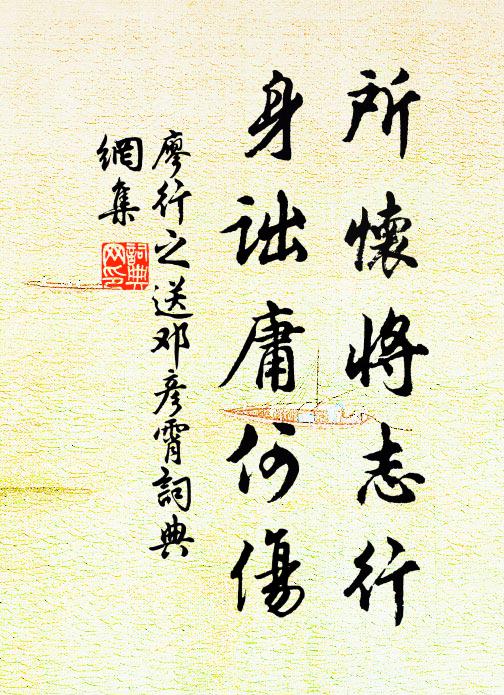 所懷將志行
身詘庸何傷
廖行之送邓彥霄詞典
網集
詞典网印